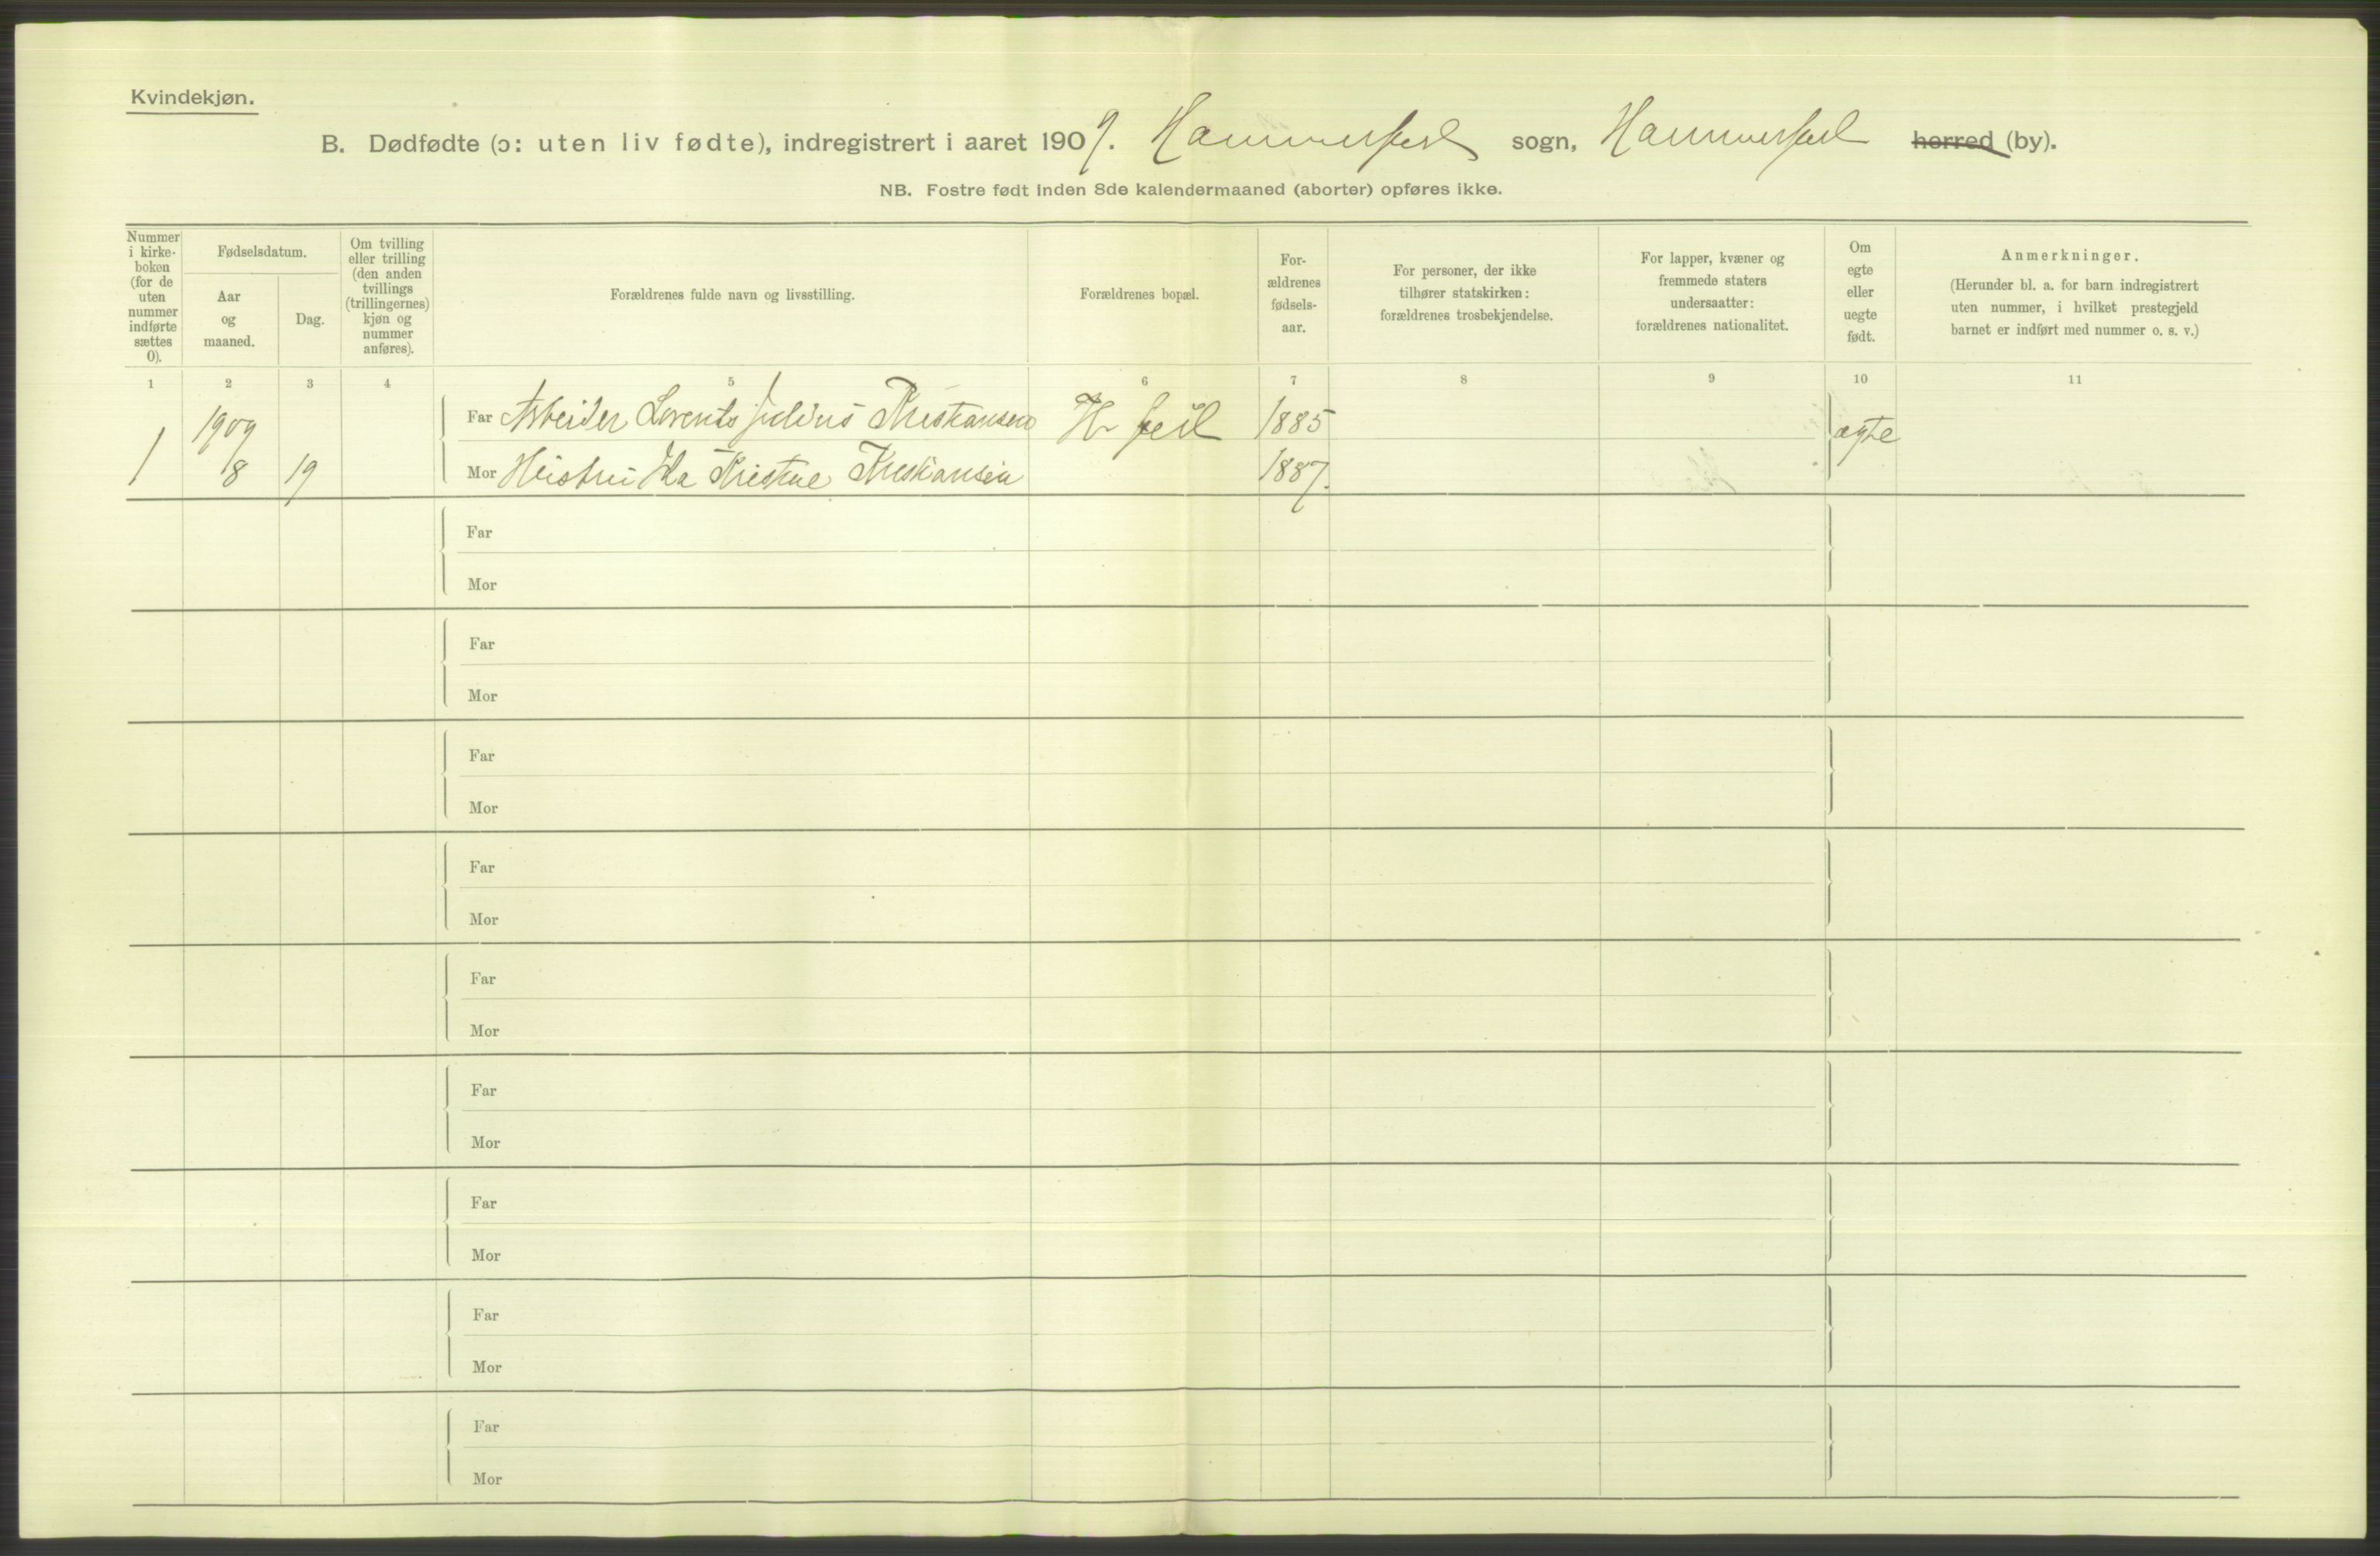 Kvindekjøn.
B. Dødfødte (ɔ: uten liv fødte), indregistrert i aaret 1909. Hammerfest sogn, Hammerfest herred (by).
NB. Fostre født inden 8de kalendermaaned (aborter) opføres ikke.
Nummer i kirke-boken (for de uten nummer indførte sættes 0).
Fødselsdatum.
Aar og maaned.
Dag.
Om tvilling eller trilling (den anden tvillings (trillingernes) kjøn og nummer anføres).
Forældrenes fulde navn og livsstilling.
Forældrenes bopæl.
For-ældrenes fødsels-aar.
For personer, der ikke tilhører statskirken: forældrenes trosbekjendelse.
For lapper, kvæner og fremmede staters undersaatter: forældrenes nationalitet.
Om egte eller uegte født.
Anmerkninger.
(Herunder bl. a. for barn indregistrert uten nummer, i hvilket prestegjeld barnet er indført med nummer o. s. v.)
1 2 3 4 5 6 7 8 9 10 11
1909 Far Arbeider Lorents Julius Kristiansen H.fest 1885 ægte
1 8 19 Mor Hustru Ida Kristine Kristiansen 1887.
Far
Mor
Far
Mor
Far
Mor
Far
Mor
Far
Mor
Far
Mor
Far
Mor
Far
Mor
Far
Mor